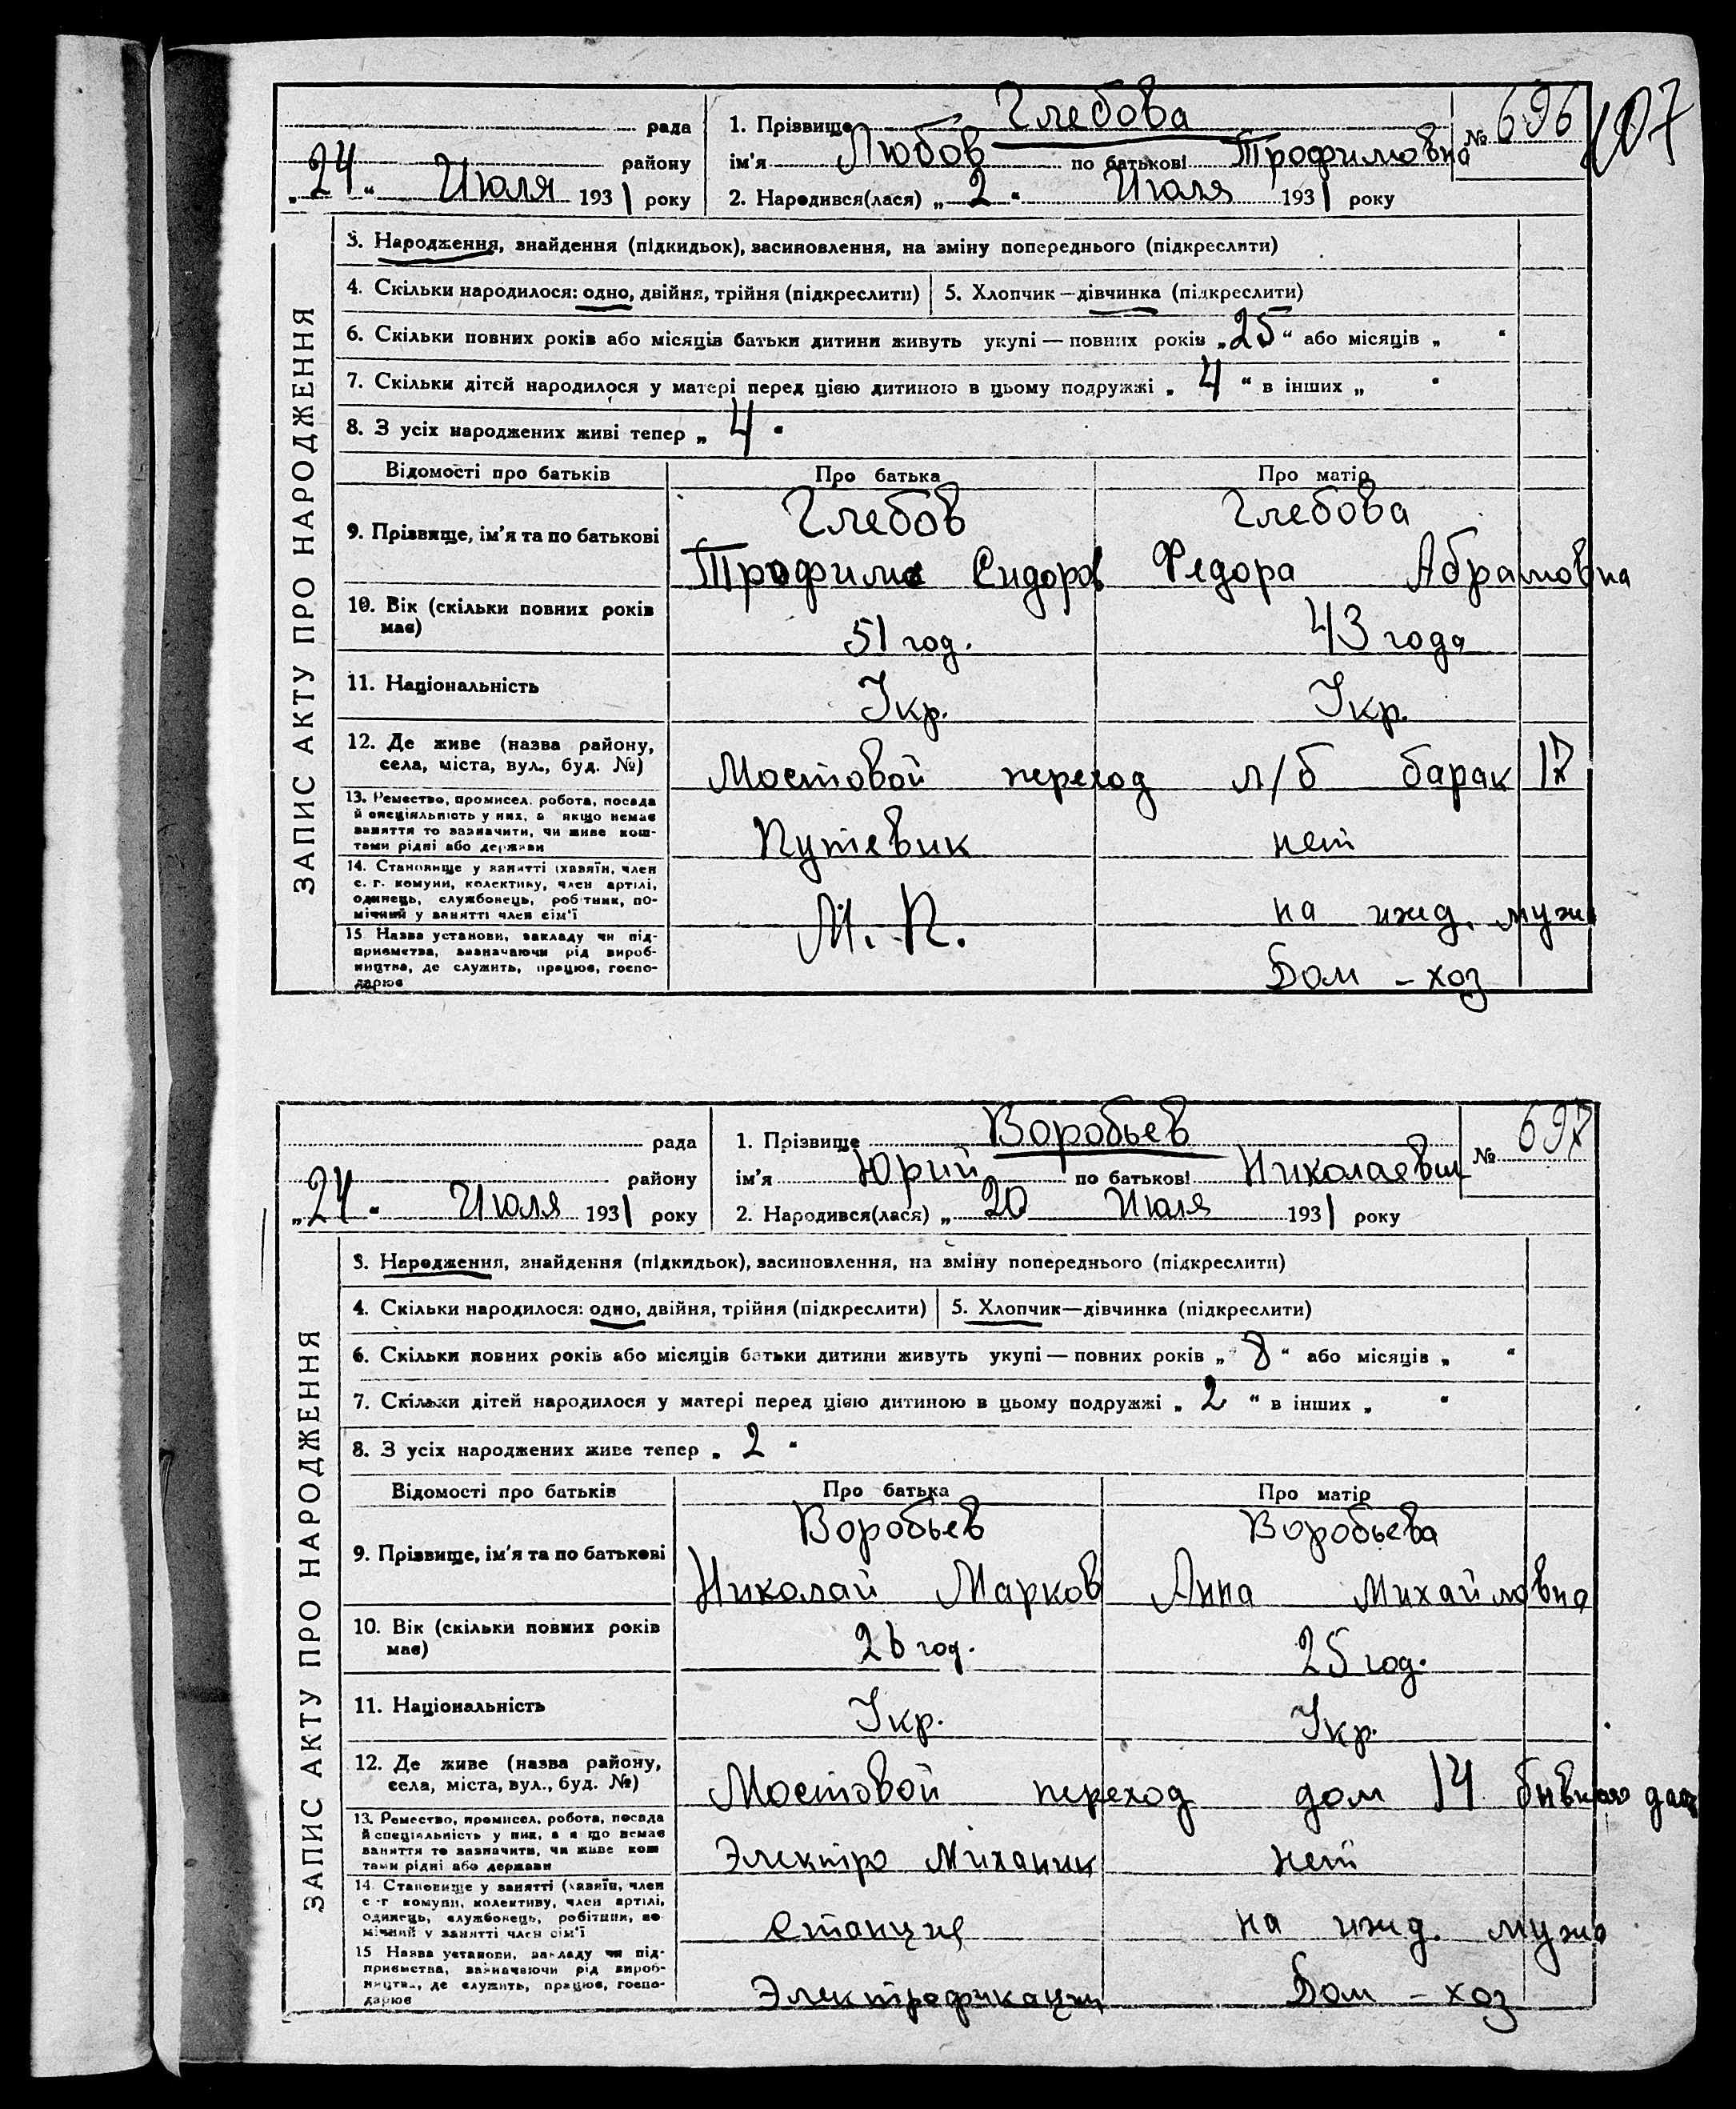 107
рада
1. Прізвище Глебова
№ 696
району
ім'я Любов по батькові Трофимовна
„24“ Июля 1931 року
2. Народився(лася) „2“ Июля 1931 року
ЗАПИС АКТУ ПРО НАРОДЖЕННЯ
3. Народження, знайдення (підкидьок), засиновлення, на зміну попереднього (підкреслити)
4. Скільки народилося: одно, двійня, трійня (підкреслити) 5. Хлопчик—дівчинка (підкреслити)
6. Скільки повних років або місяців батьки дитини живуть укупі — повних років „25“ або місяців „ “
7. Скільки дітей народилося у матері перед цією дитиною в цьому подружжі „4“ в інших „ “
8. З усіх народжених живі тепер „4“
Відомості про батьків Про батька Про матір
Глебов Глебова
9. Прізвище, ім'я та по батькові
Трофим Сидоров Федора Абрамовна
10. Вік (скільки повних років
має)
51 год. 43 года
11. Національність Укр. Укр.
12. Де живе (назва району,
села, міста, вул., буд. №)
Мостовой переход л/б барак 17
13. Ремество, промисел, робота, посада
й спеціяльність у них, а якщо немає
заняття то зазначити, чи живе кош-
тами рідні або держави
Путевик нет
14. Становище у занятті (хазяїн, член
с.-г. комуни, колективу, член артілі,
одинець, службовець, робітник, по-
мічний у занятті член сім'ї
М. П. на ижд. мужа
15. Назва установи, закладу чи під-
приємства, зазначаючи рід вироб-
ництва, де служить, працює, госпо-
дарює
Дом - хоз
рада
1. Прізвище Воробьев
№ 697
району
ім'я Юрий по батькові Николаевич
„24“ Июля 1931 року
2. Народився(лася) „20 Июля 1931 року
ЗАПИС АКТУ ПРО НАРОДЖЕННЯ
3. Народження, знайдення (підкидьок), засиновлення, на зміну попереднього (підкреслити)
4. Скільки народилося: одно, двійня, трійня (підкреслити) 5. Хлопчик—дівчинка (підкреслити)
6. Скільки повних років або місяців батьки дитини живуть укупі — повних років „8“ або місяців „ “
7. Скільки дітей народилося у матері перед цією дитиною в цьому подружжі „2“ в інших „ “
8. З усіх народжених живе тепер „2“
Відомості про батьків Про батька Про матір
Воробьев Воробьева
9. Прізвище, ім'я та по батькові
Николай Марков Анна Михайловна
10. Вік (скільки повних років
має)
26 год. 25 год.
11. Національність Укр. Укр.
12. Де живе (назва району,
села, міста, вул., буд. №)
Мостовой переход дом 14
13. Ремество, промисел, робота, посада
й спеціяльність у них, а якщо немає
заняття то зазначити, чи живе кош-
тами рідні або держави
Электро Миханик нет
14. Становище у занятті (хазяїн, член
с.-г. комуни, колективу, член артілі,
одинець, службовець, робітник, по-
мічний у занятті член сім'ї
Станция на ижд. мужа
15. Назва установи, закладу чи під-
приємства, зазначаючи рід вироб-
ництва, де служить, працює, госпо-
дарює
Электрофикации Дом - хоз